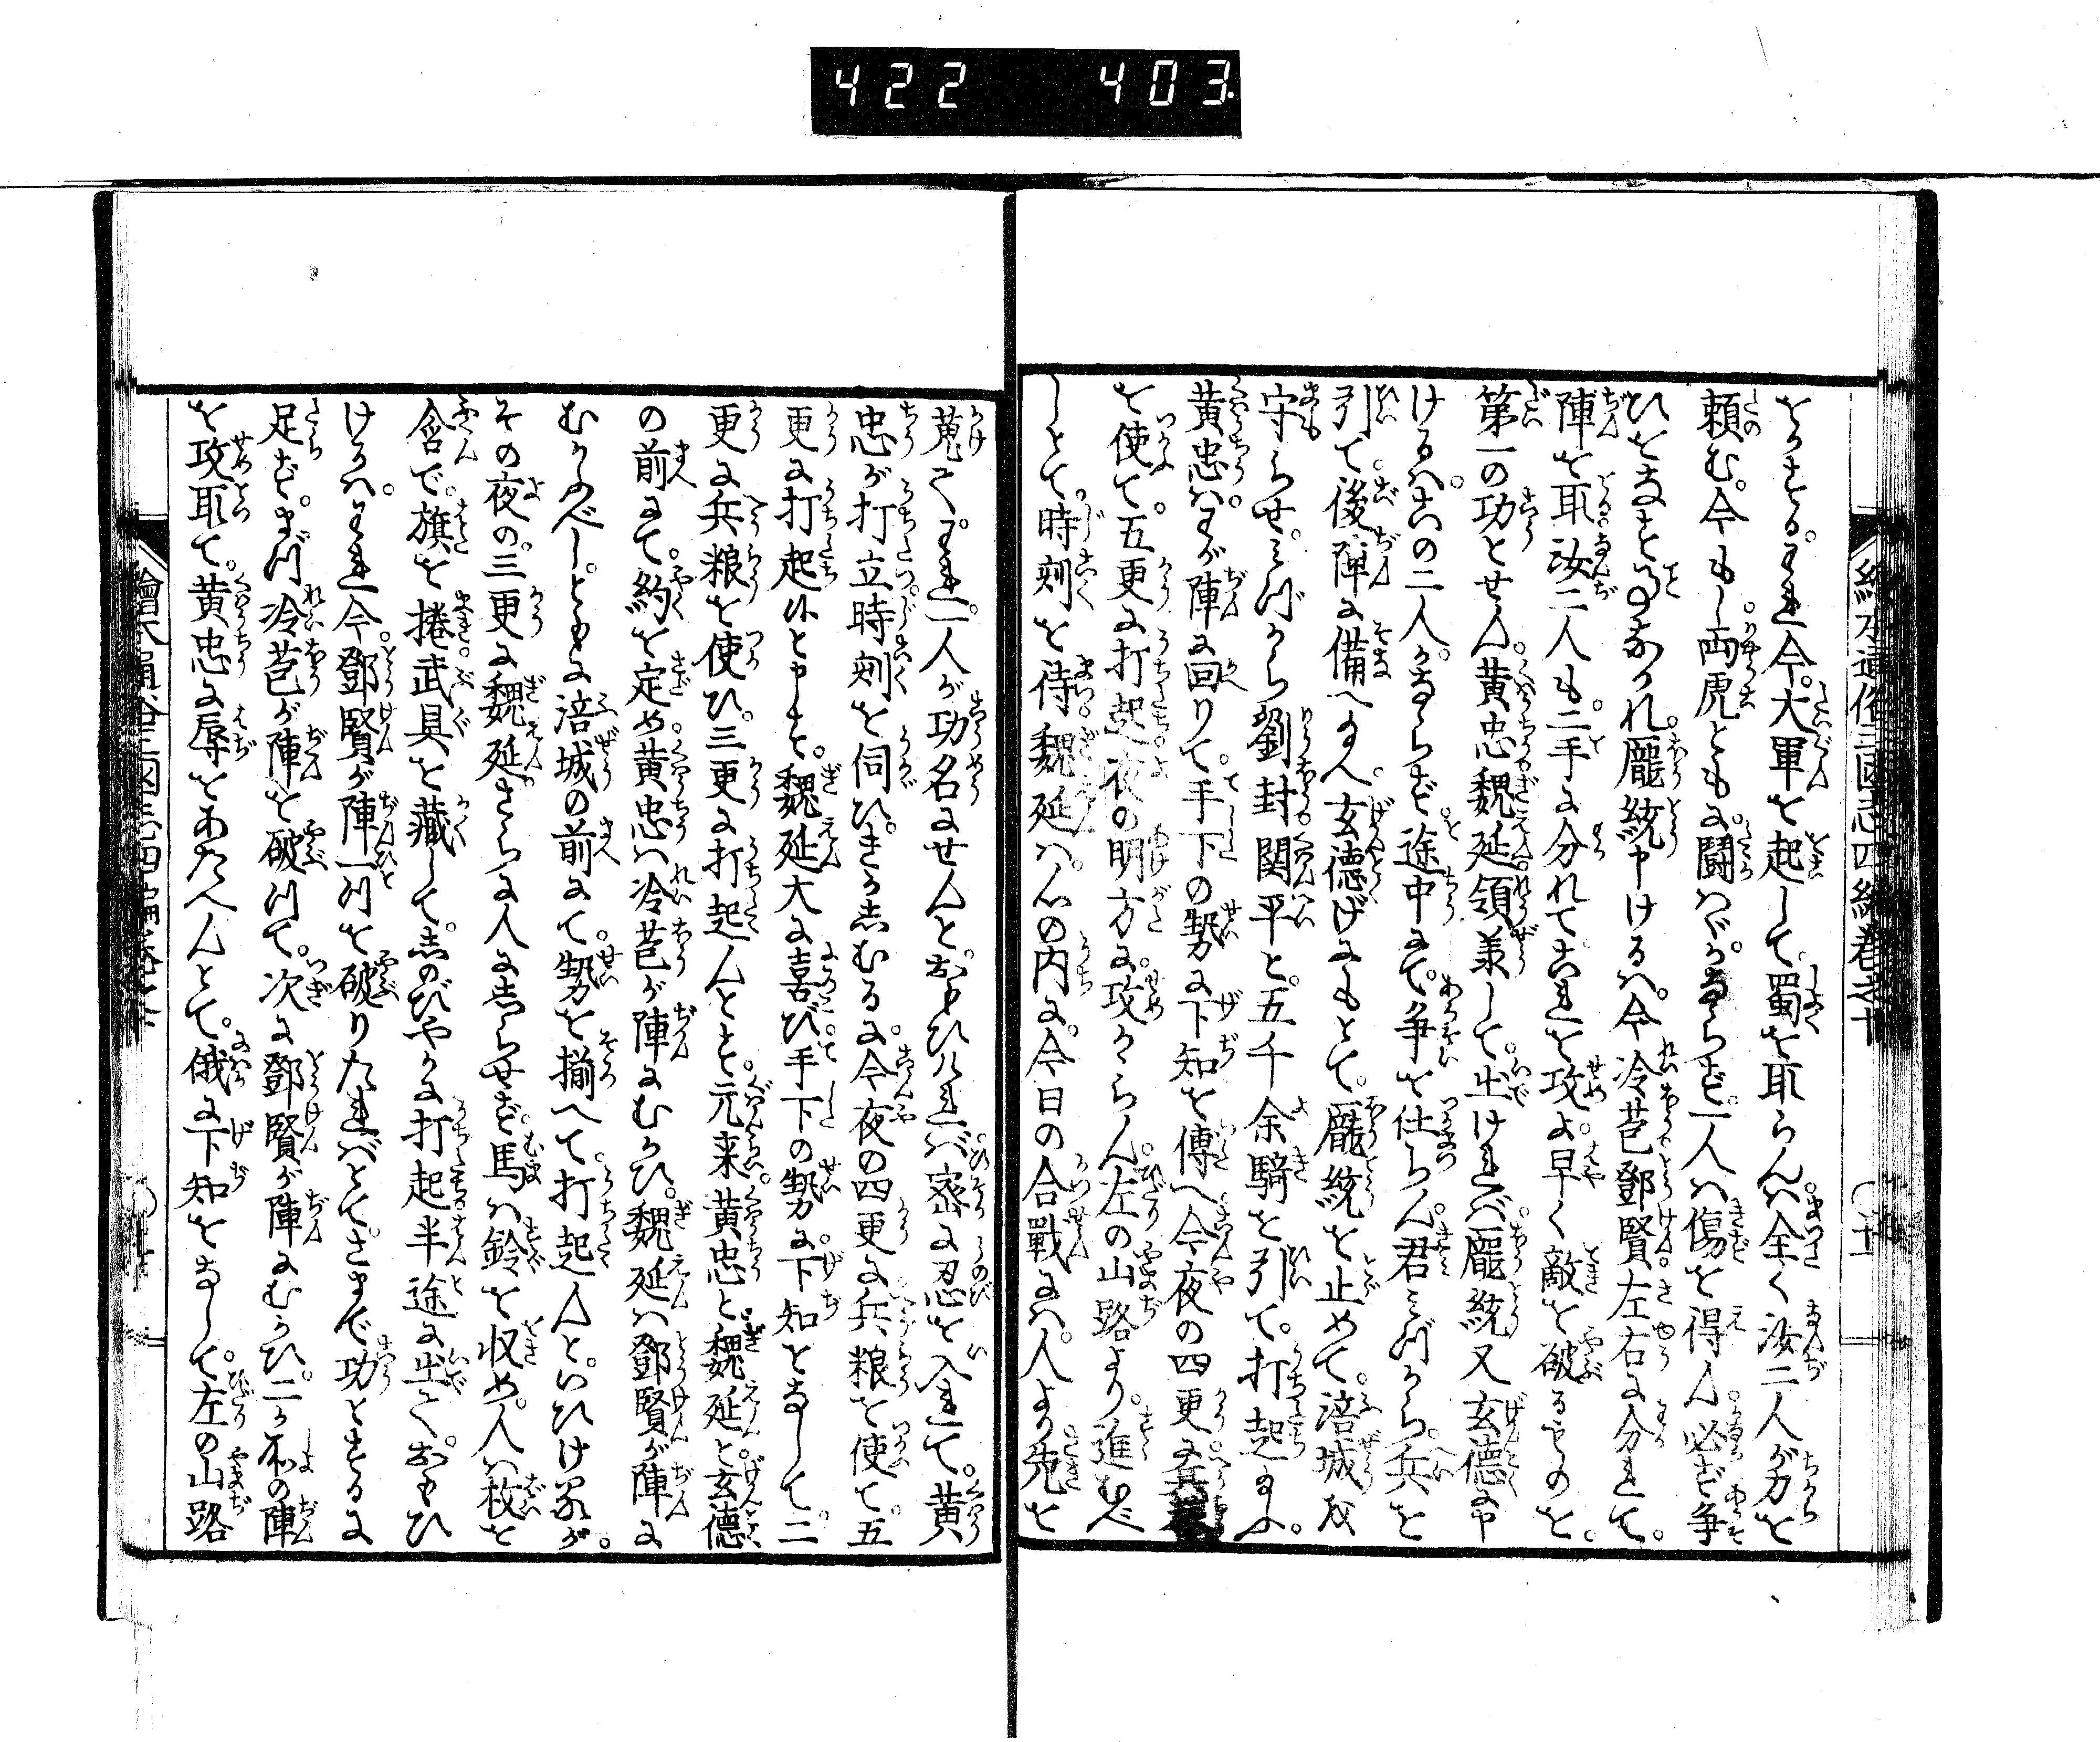 422 403
繪本通俗三國志四編卷之十
をうとる。われ今。大軍を起して。蜀を取らんハ。全く汝二人が力を
頼む。今もし。両虎ともに闘ハゞ。かならず。一人ハ傷を得ん。必ず争
ひをなすと𪜈なかれ。龐統申けるハ。今冷苞鄧賢。左右に分れて。
陣を取る。汝二人も。二手に分れてこれを攻よ。早く敵を破るものを。
第一の功とせん。黄忠魏延。領掌して。出けれバ。龐統又玄德に申
けるハ。この二人。かならず。途中にて。争を仕らん。君みづから。兵を
引て。後陣に備へ玉へ。玄德げにもとて。龐統を止めて。涪城を
守らせ。みづから劉封関平と。五千余騎を引て。打起玉ふ。
黄忠ハ。わが陣に回りて。手下の勢に下知を傳へ。今夜の四更に。兵粮
を使て。五更に打起。夜の明方に。攻かゝらん。左の山路より。進むべ
しとて。時刻を待。魏延ハ。心の内に。今日の合戰にハ。人より先を
蒐て。われ一人が功名にせんと。おもひけれバ。密に忍を入れて。黄
忠が打立時刻を伺ひ。きかしむるに。今夜の四更に。兵粮を使て。五
更に打起候と申す。魏延大に喜び。手下の勢に。下知をなして。二
更に兵粮を使ひ。三更に打起んとす。元来。黄忠と。魏延と。玄德
の前にて。約を定め。黄忠ハ冷苞が陣にむかひ。魏延ハ鄧賢が陣に
むかふべしと。ともに涪城の前にて。勢を揃へて。打起んと。いひけるが。
その夜の。三更に魏延。さらに人にしらせず。馬ハ鈴を収め。人ハ枚を
含で。旗を捲武具を藏して。しのびやかに打起。半途に出て。おもひ
けるハ。われ今。鄧賢が陣一ツを破りたれバとて。さまで功とするに
足ず。まづ冷苞が陣を破ツて。次に鄧賢が陣にむかひ。二ケ所の陣
を攻取て。黄忠に辱をあたへんとて。俄に下知をなして。左の山路
繪本通俗三國志四編卷之十